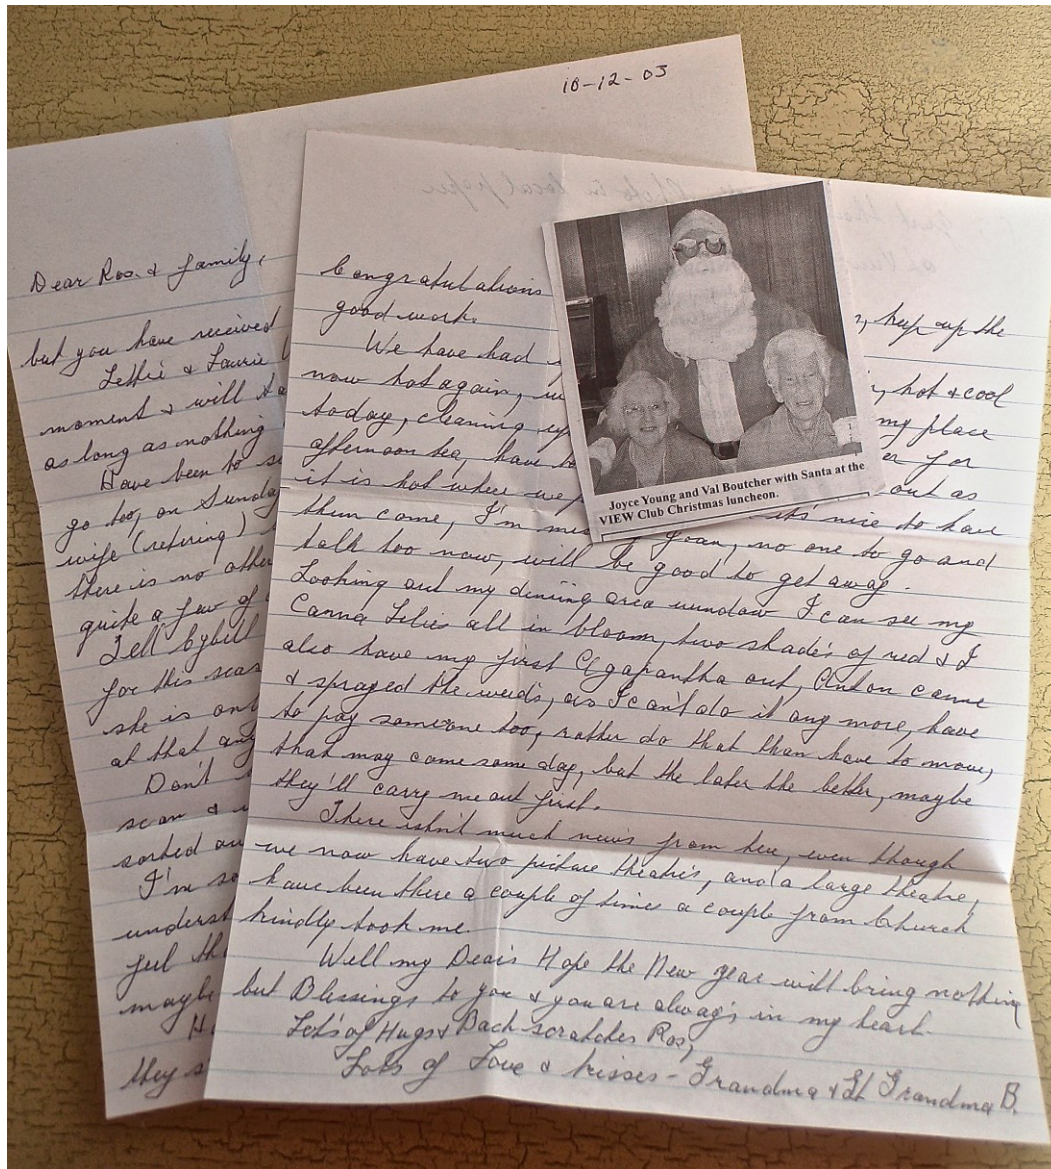 18-12-03
Dear Ros. & family,
but you have received
Leslie & Laurie
moment & will
as long as nothing
Have been to
go too, on Sunday
wife (retiring)
there is no other
quite a few of
Tell Cybill
for this
she is
at that
Don't
scan &
sorted
I'm
feel
maybe
they
Congratulations keep up the
good work.
We have had hot & cool
now hot again, my place
today, cleaning for
afternoon tea, have out as
it is hot where we it's nice to have
them come, I'm Joan, no one to go and
talk too now, will be good to get away.
Looking out my dining area window I can see my
Canna Lilies all in bloom, two shades of red & I
also have my first Agapantha out, Anton came
& sprayed the weeds, as I can't do it any more, have
to pay someone too, rather do that than have to move,
that may come some day, but the later the better, maybe
they'll carry me out first.
There isn't much news from here, even though
we now have two picture theatres, and a large theatre,
have been there a couple of times a couple from Church
kindly took me.
Well my Dears Hope the New year will bring nothing
but Blessings to you & you are always in my heart.
Lots of Hugs & Back scratches Ros,
Lots of Love & kisses - Grandma & Gt Grandma B.
Joyce Young and Val Boutcher with Santa at the
VIEW Club Christmas luncheon.